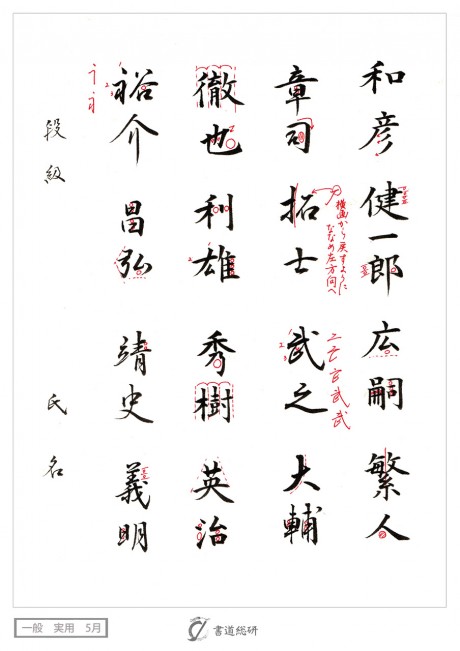 和彦 健一郎 広嗣 繁人
章司 拓士 武之 大輔
横画から戻すように
ななめ左方向へ
徹也 利雄 秀樹 英治
裕介 昌弘 靖史 義明
段級 氏名
一般 実用 5月
書道総研